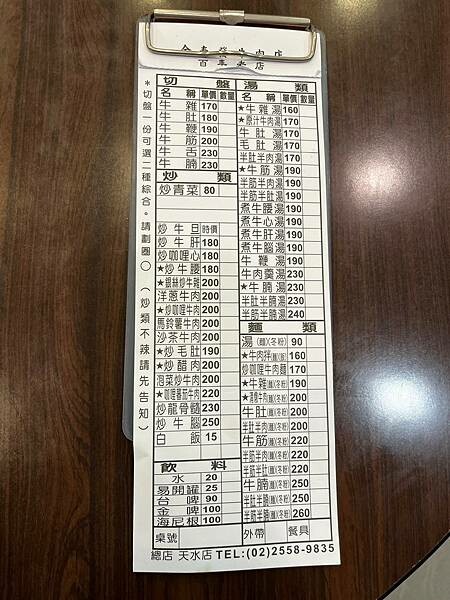 金春發牛肉店
百年老店
*切盤一份可選二種綜合。請劃圈○ （炒類不辣請先告知）
切盤
名稱 單價 數量
牛雜 170
牛肚 180
牛鞭 190
牛筋 200
牛舌 230
牛腩 230
炒類
炒青菜 80
炒牛旦 時價
炒牛肝 180
炒咖哩心 180
★炒牛腰 180
★銀絲炒牛雜 200
洋蔥牛肉 200
★炒咖哩牛肉 200
馬鈴薯牛肉 200
沙茶牛肉 200
★炒毛肚 190
★炒醋肉 200
泡菜炒牛肉 200
★咖哩蕃茄牛肉 220
炒龍骨髓 230
炒牛腦 250
白飯 15
飲料
水 20
易開罐 25
台啤 90
金啤 100
海尼根 100
桌號
湯類
名稱 單價 數量
★牛雜湯 160
★原汁牛肉湯 170
牛肚湯 170
毛肚湯 170
半肚半肉湯 170
★牛筋湯 190
半筋半肉湯 190
半筋半肚湯 190
煮牛腰湯 190
煮牛心湯 190
煮牛肝湯 190
煮牛腦湯 190
牛鞭湯 190
牛肉羹湯 230
★牛腩湯 230
半肚半腩湯 230
半筋半腩湯 240
麵類
湯(麵)(冬粉) 90
★牛肉拌(麵)(飯) 160
炒咖哩牛肉麵 170
★牛雜(麵)(冬粉) 190
★清燉牛肉(麵)(冬粉) 200
牛肚(麵)(冬粉) 200
半肚半肉(麵)(冬粉) 200
牛筋(麵)(冬粉) 220
半筋半肉(麵)(冬粉) 220
半筋半肚(麵)(冬粉) 220
牛腩(麵)(冬粉) 250
半肚半腩(麵)(冬粉) 250
半筋半腩(麵)(冬粉) 260
外帶 餐具
總店 天水店 TEL:(02)2558-9835